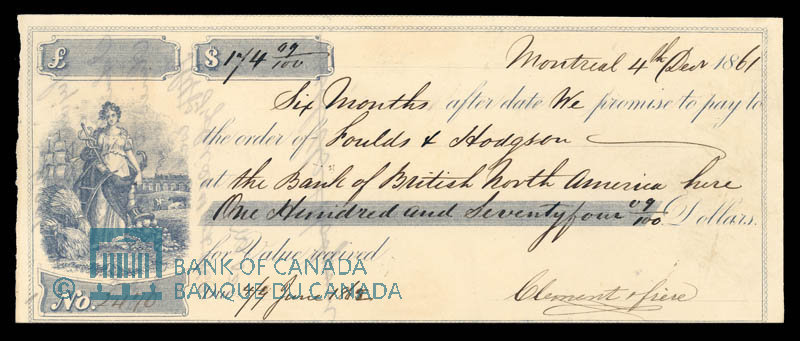 £
$ 174 09/100
Montreal 4th Decr 1861
Six Months after date We promise to pay to
the order of Foulds & Hodgson
at the Bank of British North America here
One Hundred and Seventy four 09/100 Dollars.
for Value recived
BANK OF CANADA
© BANQUE DU CANADA
No.
Due June 1862
Clement & frere